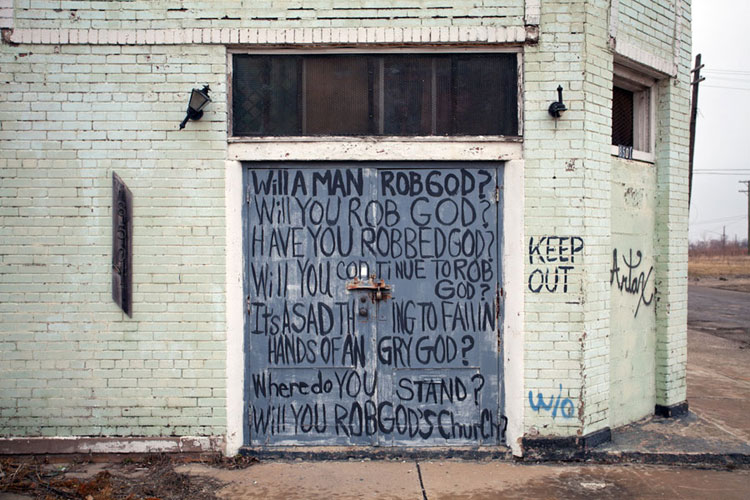 WillA MAN ROB GOD?
Will YOU ROB GOD?
HAVE YOU ROBBED GOD?
Will YOU CONTINUE TO ROB
GOD?
It's A SAD THING TO FALL IN
HANDS OF AN GRY GOD?
Where do YOU STAND?
Will YOU ROB GOD'S CHurCH?
KEEP
OUT
Artax
W/O